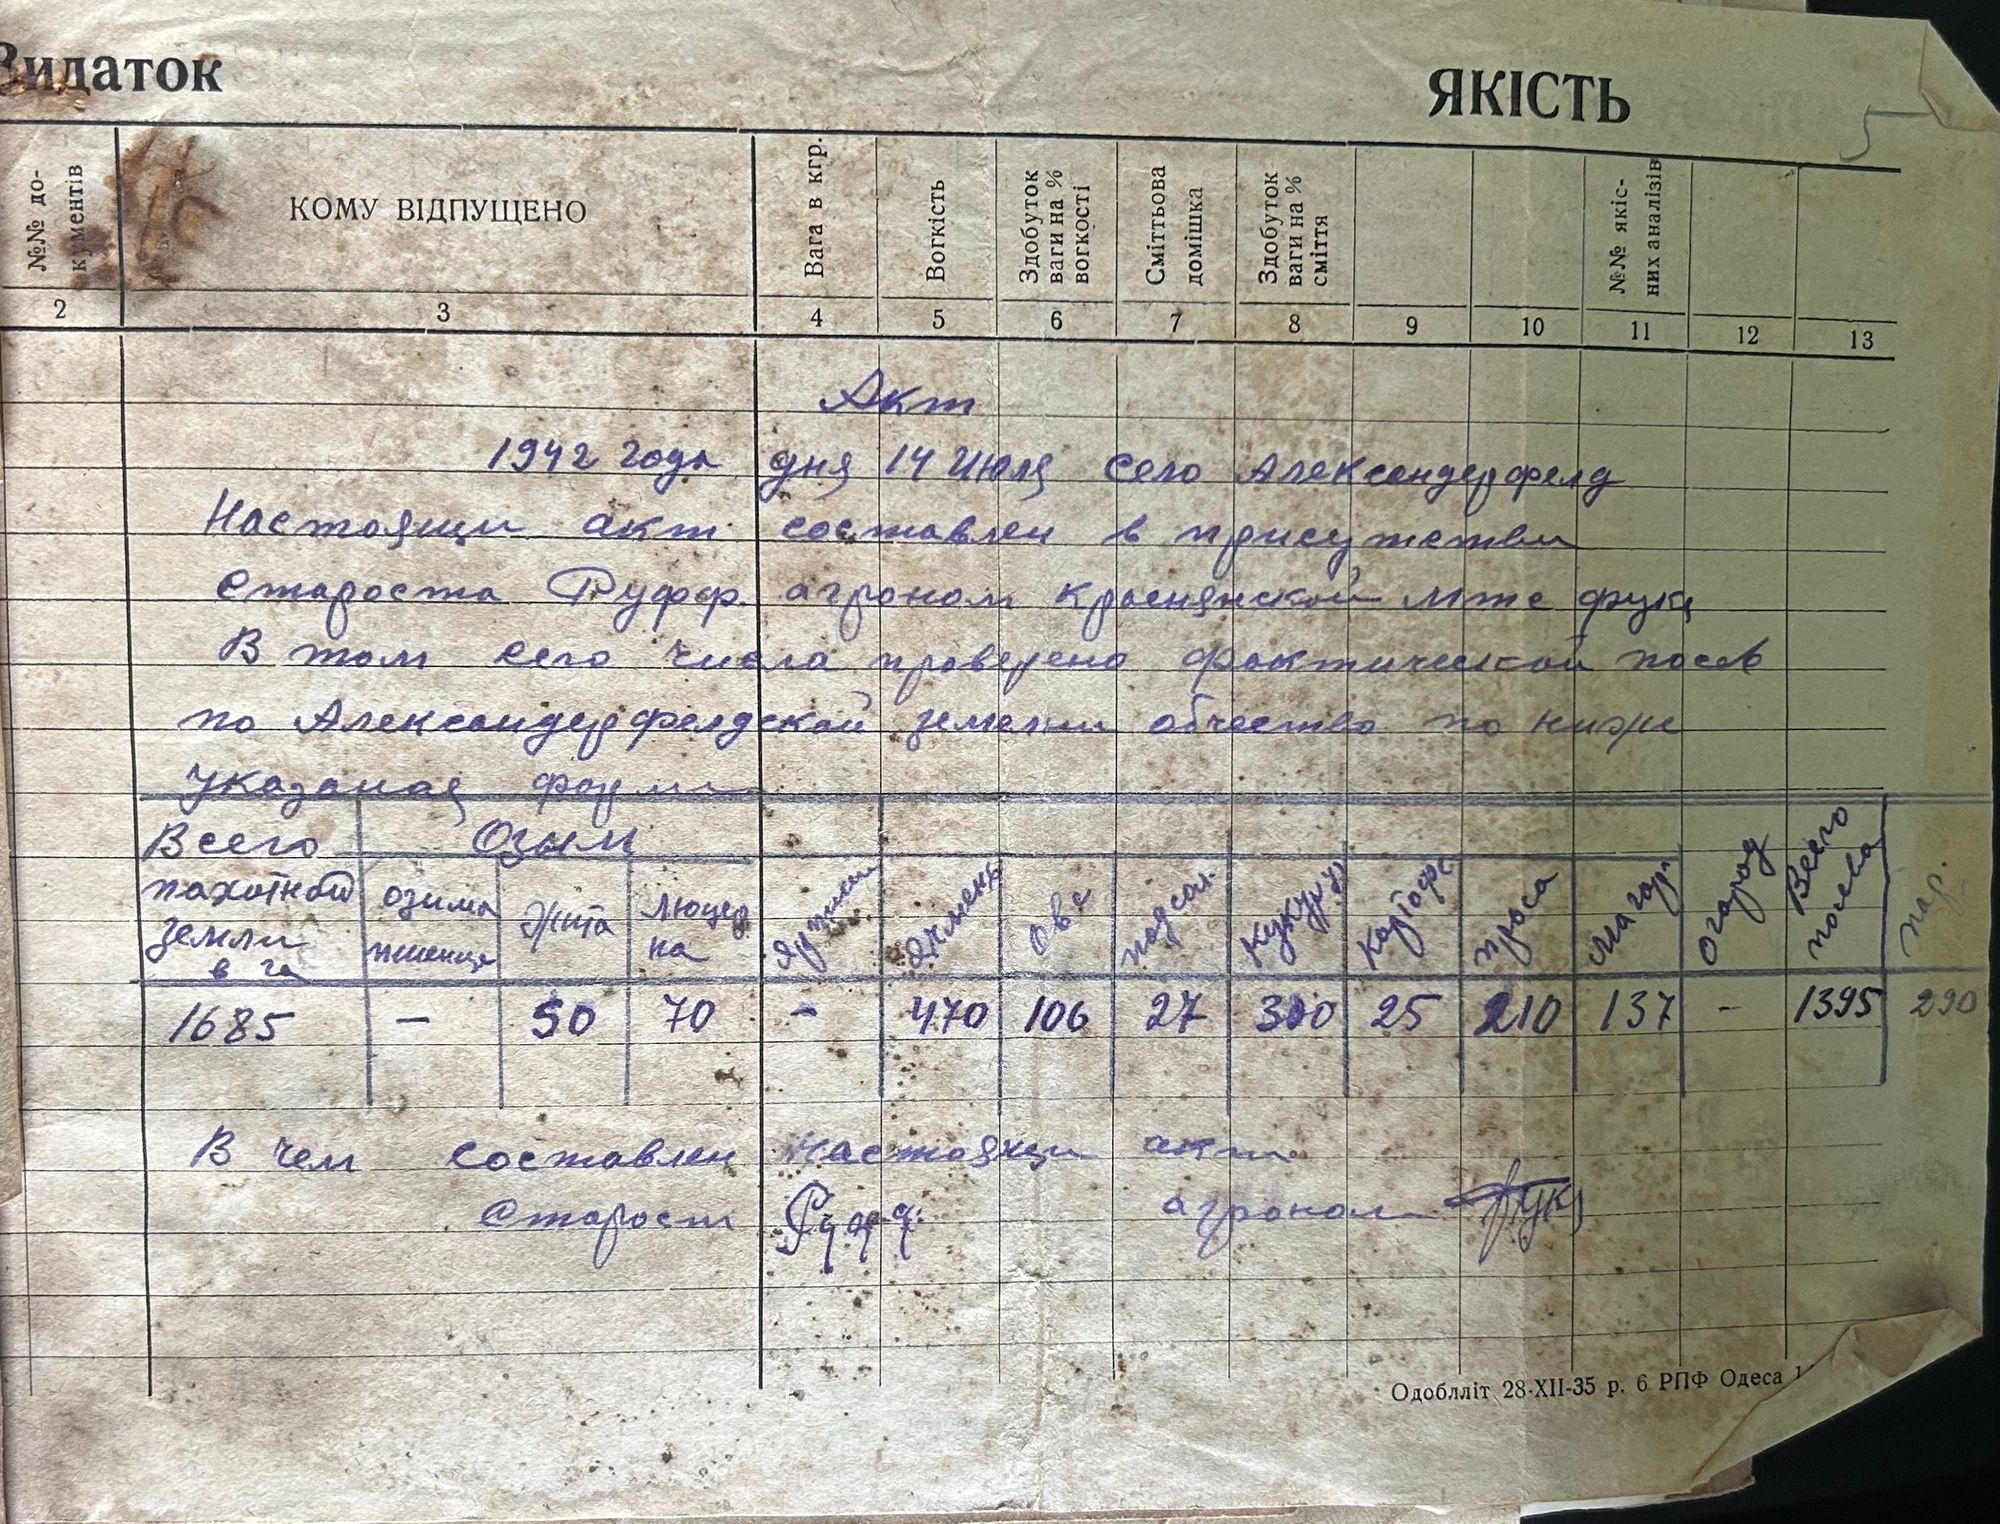 Видаток
ЯКІСТЬ
5
№№ до-
кументів
КОМУ ВІДПУЩЕНО
Вага в кгр.
Вогкість
Здобуток
ваги на %
вогкості
Сміттьова
домішка
Здобуток
ваги на %
сміття
№№ якіс-
них аналізів
2 3 4 5 6 7 8 9 10 11 12 13
Акт
1942 года дня 14 Июля Село Александерфелд
Настоящи акт составлен в присутстви
Староста Руфф. агроном Краснянской мтс фукс
В том сего числа проверено фактической посев
по Александерфелдской земелни обчество по ниже
указаная форми
Всего
пахотной
земли
в га
Озым
озима
пшеница
Жита
люцер
на
Ячмень
Овс
подсол.
Кукуруз
Картофе
проса
Магар.
огород
Всего
посева
пар.
1685 - 50 70 - 470 106 27 300 25 210 137 - 1395 290
В чем составлен настоящи акт
Старост Руфф. агроном Фукс
Одоблліт 28-XII-35 р. 6 РПФ Одеса